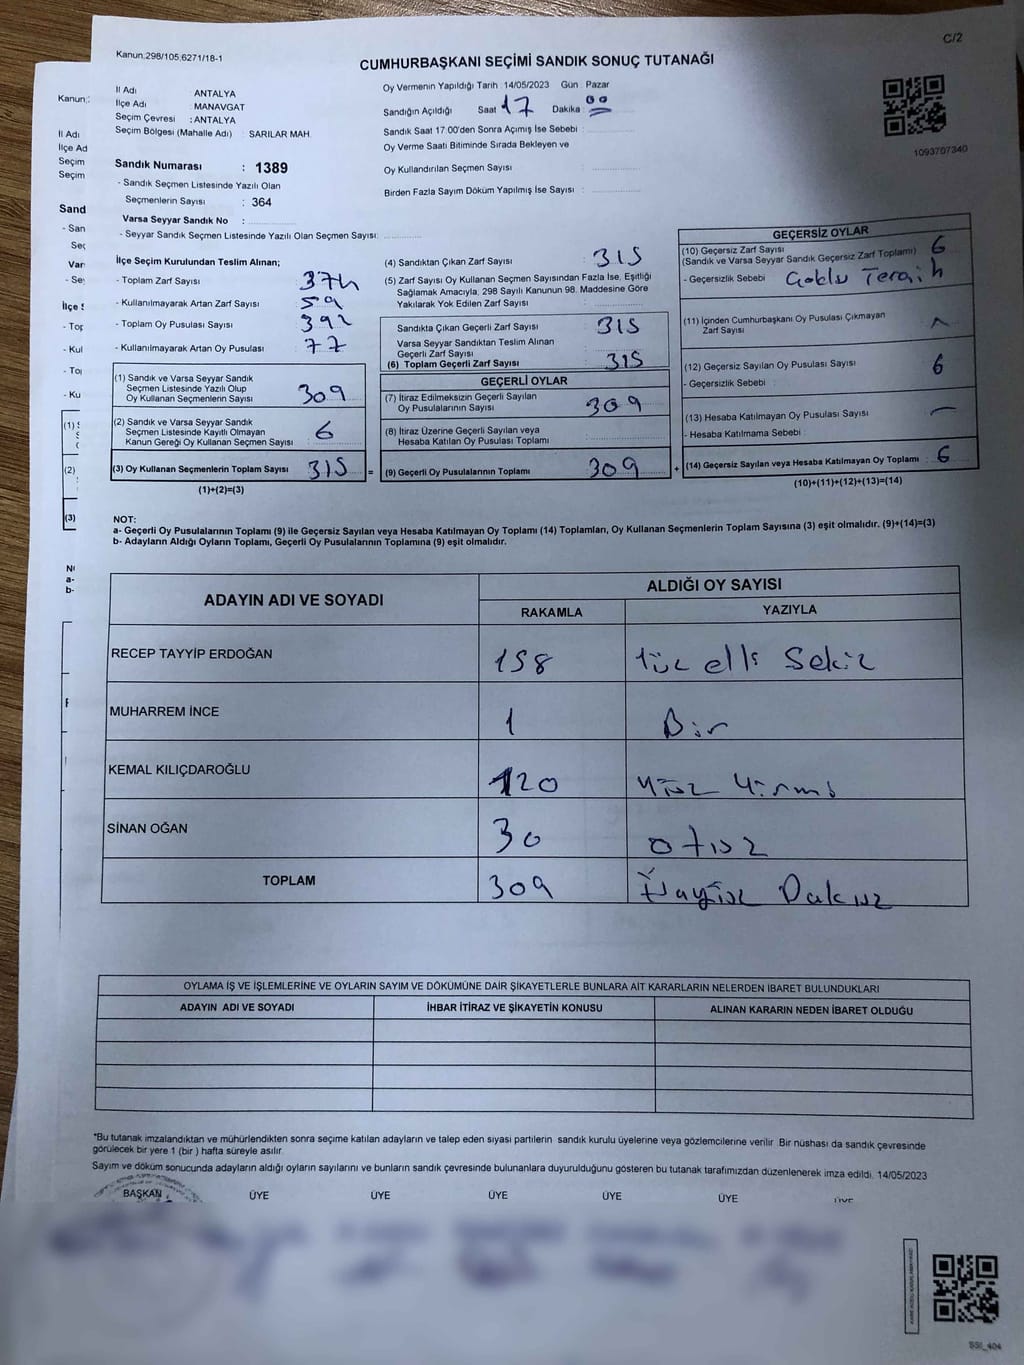 C/2
Kanun:298/105,6271/18-1
CUMHURBAŞKANI SEÇİMİ SANDIK SONUÇ TUTANAĞI
İl Adı ANTALYA
İlçe Adı MANAVGAT
Seçim Çevresi : ANTALYA
Seçim Bölgesi (Mahalle Adı) : SARILAR MAH.
Sandık Numarası : 1389
- Sandık Seçmen Listesinde Yazılı Olan
Seçmenlerin Sayısı : 364
Varsa Seyyar Sandık No :
- Seyyar Sandık Seçmen Listesinde Yazılı Olan Seçmen Sayısı:
Oy Vermenin Yapıldığı Tarih : 14/05/2023 Gün : Pazar
Sandığın Açıldığı Saat 17 Dakika : 00
Sandık Saat 17:00'den Sonra Açımış İse Sebebi :
Oy Verme Saati Bitiminde Sırada Bekleyen ve
Oy Kullandırılan Seçmen Sayısı :
Birden Fazla Sayım Döküm Yapılmış İse Sayısı :
1093707340
İlçe Seçim Kurulundan Teslim Alınan;
- Toplam Zarf Sayısı : 374
- Kullanılmayarak Artan Zarf Sayısı : 59
- Toplam Oy Pusulası Sayısı : 392
- Kullanılmayarak Artan Oy Pusulası : 77
(1) Sandık ve Varsa Seyyar Sandık
Seçmen Listesinde Yazılı Olup
Oy Kullanan Seçmenlerin Sayısı : 309
(2) Sandık ve Varsa Seyyar Sandık
Seçmen Listesinde Kayıtlı Olmayan
Kanun Gereği Oy Kullanan Seçmen Sayısı : 6
(3) Oy Kullanan Seçmenlerin Toplam Sayısı : 315 =
(1)+(2)=(3)
(4) Sandıktan Çıkan Zarf Sayısı : 315
(5) Zarf Sayısı Oy Kullanan Seçmen Sayısından Fazla İse, Eşitliği
Sağlamak Amacıyla, 298 Sayılı Kanunun 98. Maddesine Göre
Yakılarak Yok Edilen Zarf Sayısı :
Sandıkta Çıkan Geçerli Zarf Sayısı : 315
Varsa Seyyar Sandıktan Teslim Alınan
Geçerli Zarf Sayısı :
(6) Toplam Geçerli Zarf Sayısı : 315
GEÇERLİ OYLAR
(7) İtiraz Edilmeksizin Geçerli Sayılan
Oy Pusulalarının Sayısı : 309
(8) İtiraz Üzerine Geçerli Sayılan veya
Hesaba Katılan Oy Pusulası Toplamı :
(9) Geçerli Oy Pusulalarının Toplamı : 309 +
GEÇERSİZ OYLAR
(10) Geçersiz Zarf Sayısı
(Sandık ve Varsa Seyyar Sandık Geçersiz Zarf Toplamı) : 6
- Geçersizlik Sebebi : Çoklu Tercih
(11) İçinden Cumhurbaşkanı Oy Pusulası Çıkmayan
Zarf Sayısı :
(12) Geçersiz Sayılan Oy Pusulası Sayısı : 6
- Geçersizlik Sebebi :
(13) Hesaba Katılmayan Oy Pusulası Sayısı : –
- Hesaba Katılmama Sebebi :
(14) Geçersiz Sayılan veya Hesaba Katılmayan Oy Toplamı : 6
(10)+(11)+(12)+(13)=(14)
NOT:
a- Geçerli Oy Pusulalarının Toplamı (9) ile Geçersiz Sayılan veya Hesaba Katılmayan Oy Toplamı (14) Toplamları, Oy Kullanan Seçmenlerin Toplam Sayısına (3) eşit olmalıdır. (9)+(14)=(3)
b- Adayların Aldığı Oyların Toplamı, Geçerli Oy Pusulalarının Toplamına (9) eşit olmalıdır.
ADAYIN ADI VE SOYADI ALDIĞI OY SAYISI
RAKAMLA YAZIYLA
RECEP TAYYİP ERDOĞAN 158 Yüz elli Sekiz
MUHARREM İNCE 1 Bir
KEMAL KILIÇDAROĞLU 120 Yüz Yirmi
SİNAN OĞAN 30 otuz
TOPLAM 309 Üçyüz Dokuz
OYLAMA İŞ VE İŞLEMLERİNE VE OYLARIN SAYIM VE DÖKÜMÜNE DAİR ŞİKAYETLERLE BUNLARA AİT KARARLARIN NELERDEN İBARET BULUNDUKLARI
ADAYIN ADI VE SOYADI İHBAR İTİRAZ VE ŞİKAYETİN KONUSU ALINAN KARARIN NEDEN İBARET OLDUĞU
*Bu tutanak imzalandıktan ve mühürlendikten sonra seçime katılan adayların ve talep eden siyasi partilerin sandık kurulu üyelerine veya gözlemcilerine verilir. Bir nüshası da sandık çevresinde
görülecek bir yere 1 (bir ) hafta süreyle asılır.
Sayım ve döküm sonucunda adayların aldığı oyların sayılarını ve bunların sandık çevresinde bulunanlara duyurulduğunu gösteren bu tutanak tarafımızdan düzenlenerek imza edildi. 14/05/2023
BAŞKAN ÜYE ÜYE ÜYE ÜYE ÜYE ÜYE